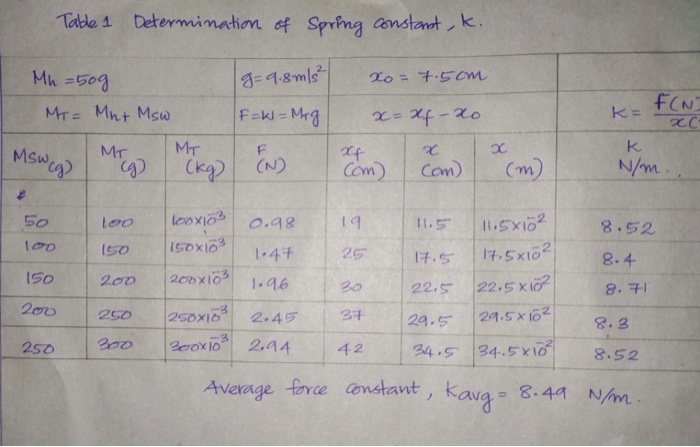 Table 1 Determination of Spring constant, k.
Mh = 50g g = 9.8m/s² x0 = 7.5cm
MT = Mh + Msw F = W = MTg x = xf - x0 K = F(N)
Msw(g) MT(g) MT(kg) F(N) xf(cm) x(cm) x(m) k N/m.
50 100 100×10⁻³ 0.98 19 11.5 11.5×10⁻² 8.52
100 150 150×10⁻³ 1.47 25 17.5 17.5×10⁻² 8.4
150 200 200×10⁻³ 1.96 30 22.5 22.5×10⁻² 8.71
200 250 250×10⁻³ 2.45 37 29.5 29.5×10⁻² 8.3
250 300 300×10⁻³ 2.94 42 34.5 34.5×10⁻² 8.52
Average force constant, Kavg = 8.49 N/m.